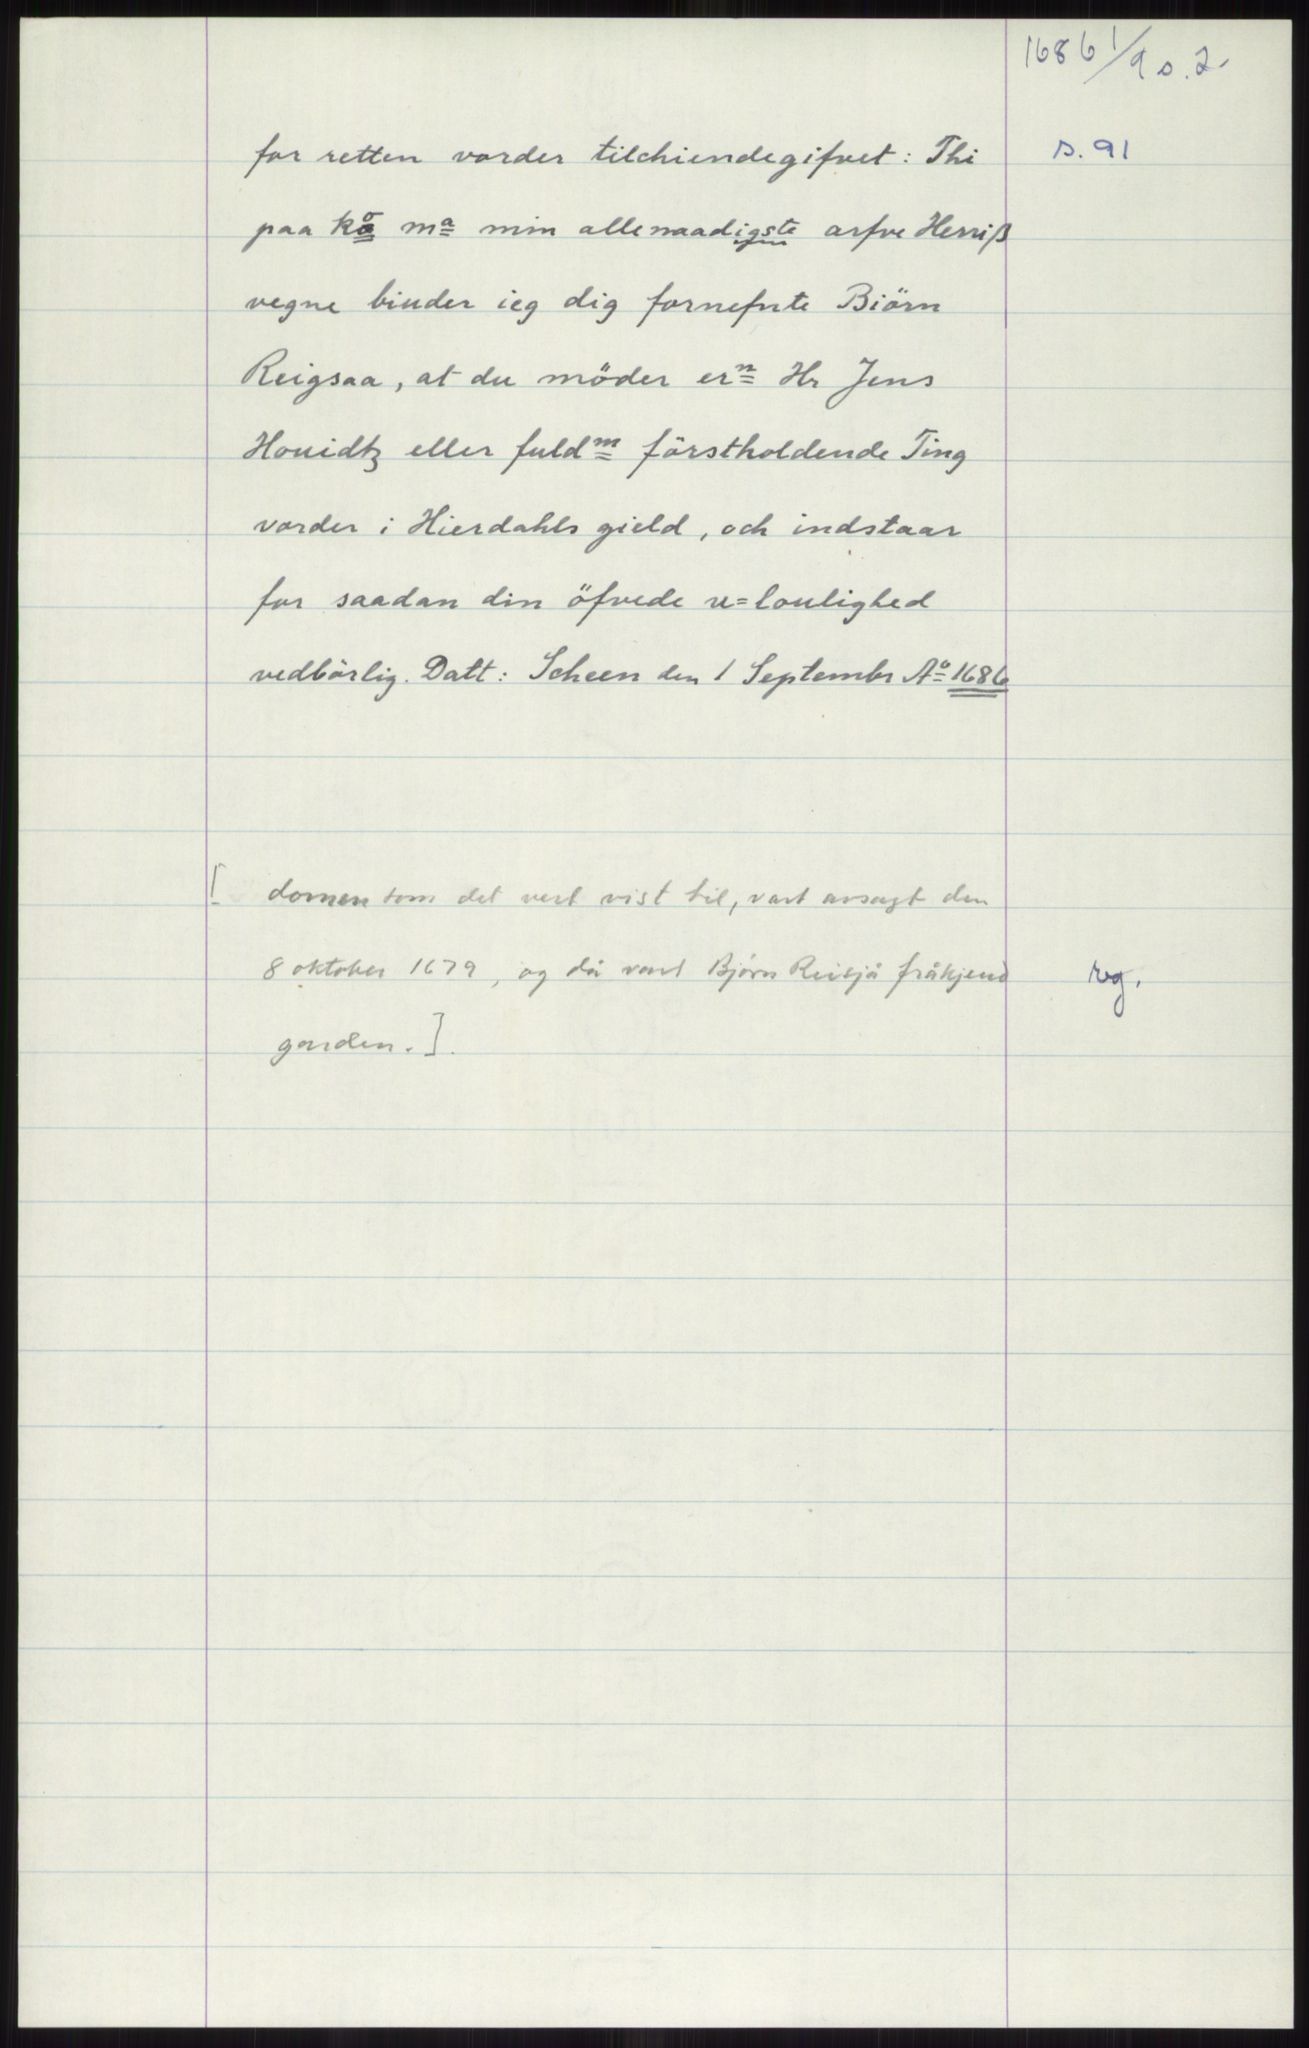 1686 1/9 s. 2.
for retten vorder tilchiendegifvet: Thi
s. 91
paa Kō mᵃ min allernaadigste arfve Herriß
vegne binder ieg dig fornefnte Biörn
Reigsaa, at du möder erⁿ Hr Jens
Houidtz eller fuldᵐ förstholdende Ting
vorder i Hierdahls gield, och indstaar
for saadan din öfvede u=loulighed
vedbörlig. Datt: Scheen den 1 Septembr Aº 1686
[ domen som det vert vist til, vart avsagt den
8 oktober 1679, og då vart Bjørn Reisjå fråkjend
rg.
garden. ].